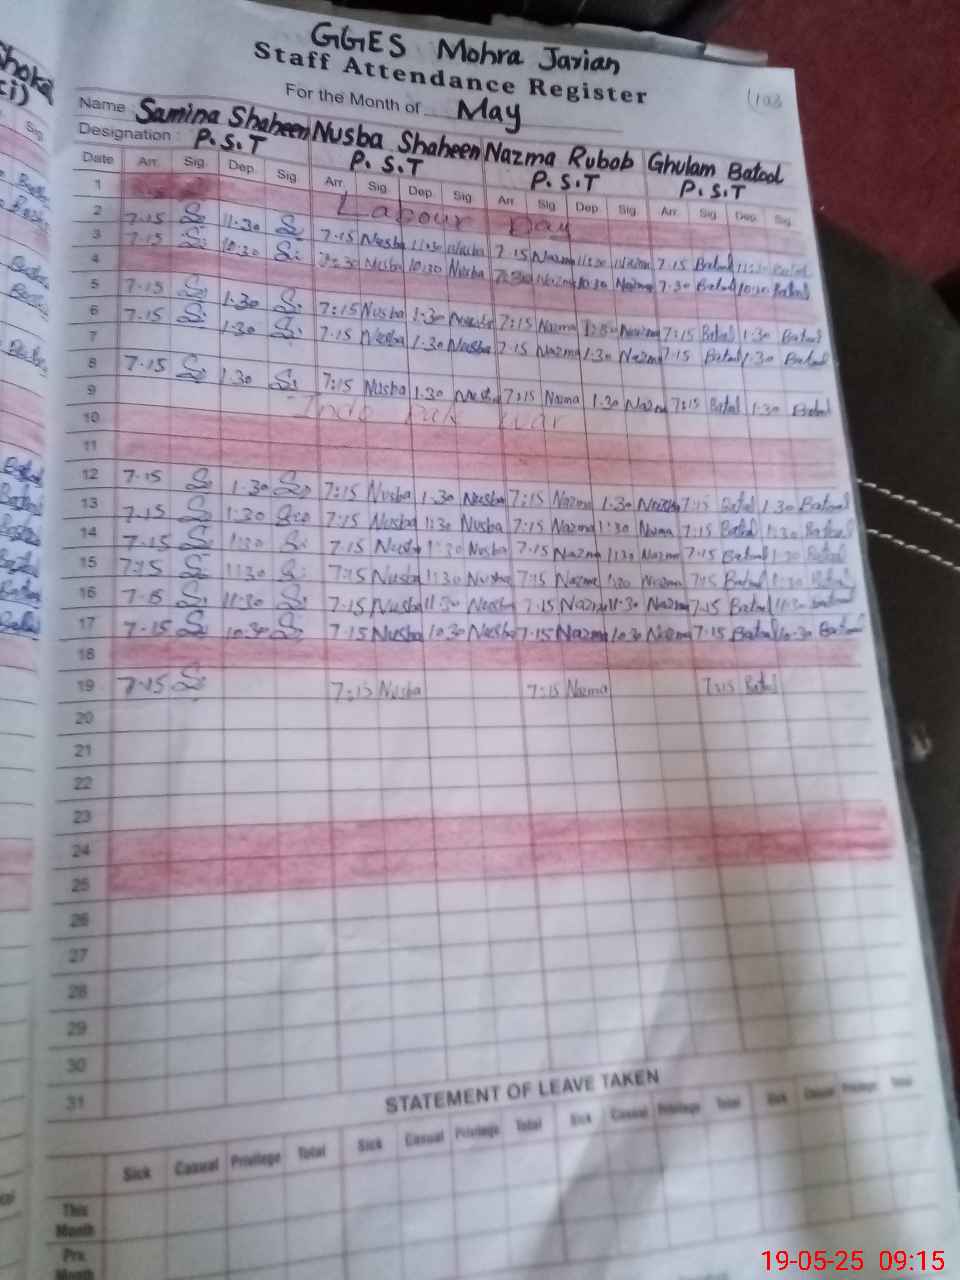 GGES Mohra Jarian
Staff Attendance Register
For the Month of May
Name Samina Shaheen Nusba Shaheen Nazma Rubob Ghulam Batool
Designation P.S.T P.S.T P.S.T P.S.T
Date Arr. Sig. Dep. Sig. Arr. Sig. Dep. Sig. Arr. Sig. Dep. Sig. Arr. Sig. Dep. Sig.
1 Labour Day
2 7.15 11:30 7.15 Nusba 11:30 Nusba 7.15 Nazma 11:30 Nazma 7.15 Batool 11:30 Batool
3 7.15 10:30 7:30 Nusba 10:30 Nusba 7:30 Nazma 10:30 Nazma 7.30 Batool 10:30 Batool
4
5 7.15 1.30 7:15 Nusba 1.30 Nusba 7:15 Nazma Nazma 7:15 Batool 1.30 Batool
6 7.15 1:30 7.15 Nusba 1.30 Nusba 7.15 Nazma 1.30 Nazma 7.15 Batool 1.30 Batool
7
8 7.15 1.30 7:15 Nusba 1.30 Nusba 7:15 Nazma 1.30 Nazma 7:15 Batool 1.30 Batool
9 Indo Pak War
10
11
12 7.15 1.30 7:15 Nusba 1.30 Nusba 7:15 Nazma 1.30 Nazma 7:15 Batool 1.30 Batool
13 7.15 1:30 7:15 Nusba 1:30 Nusba 7:15 Nazma 1:30 Nazma 7:15 Batool 1:30 Batool
14 7.15 1:30 7.15 Nusba 1:30 Nusba 7.15 Nazma 1:30 Nazma 7.15 Batool 1:30 Batool
15 7:15 1:30 7:15 Nusba 1:30 Nusba 7:15 Nazma 1:30 Nazma 7:15 Batool 1:30 Batool
16 7.15 11:30 7.15 Nusba 11:30 Nusba 7.15 Nazma 11:30 Nazma 7.15 Batool 11:30 Batool
17 7.15 10:30 7.15 Nusba 10:30 Nusba 7.15 Nazma 10:30 Nazma 7.15 Batool 10:30 Batool
18
19 7.15 7:15 Nusba 7:15 Nazma 7:15 Batool
20
21
22
23
24
25
26
27
28
29
30
31
STATEMENT OF LEAVE TAKEN
Sick Casual Privilege Total Sick Casual Privilege Total Sick Casual Privilege Total Sick Casual Privilege Total
This Month
Pre. Month
19-05-25 09:15